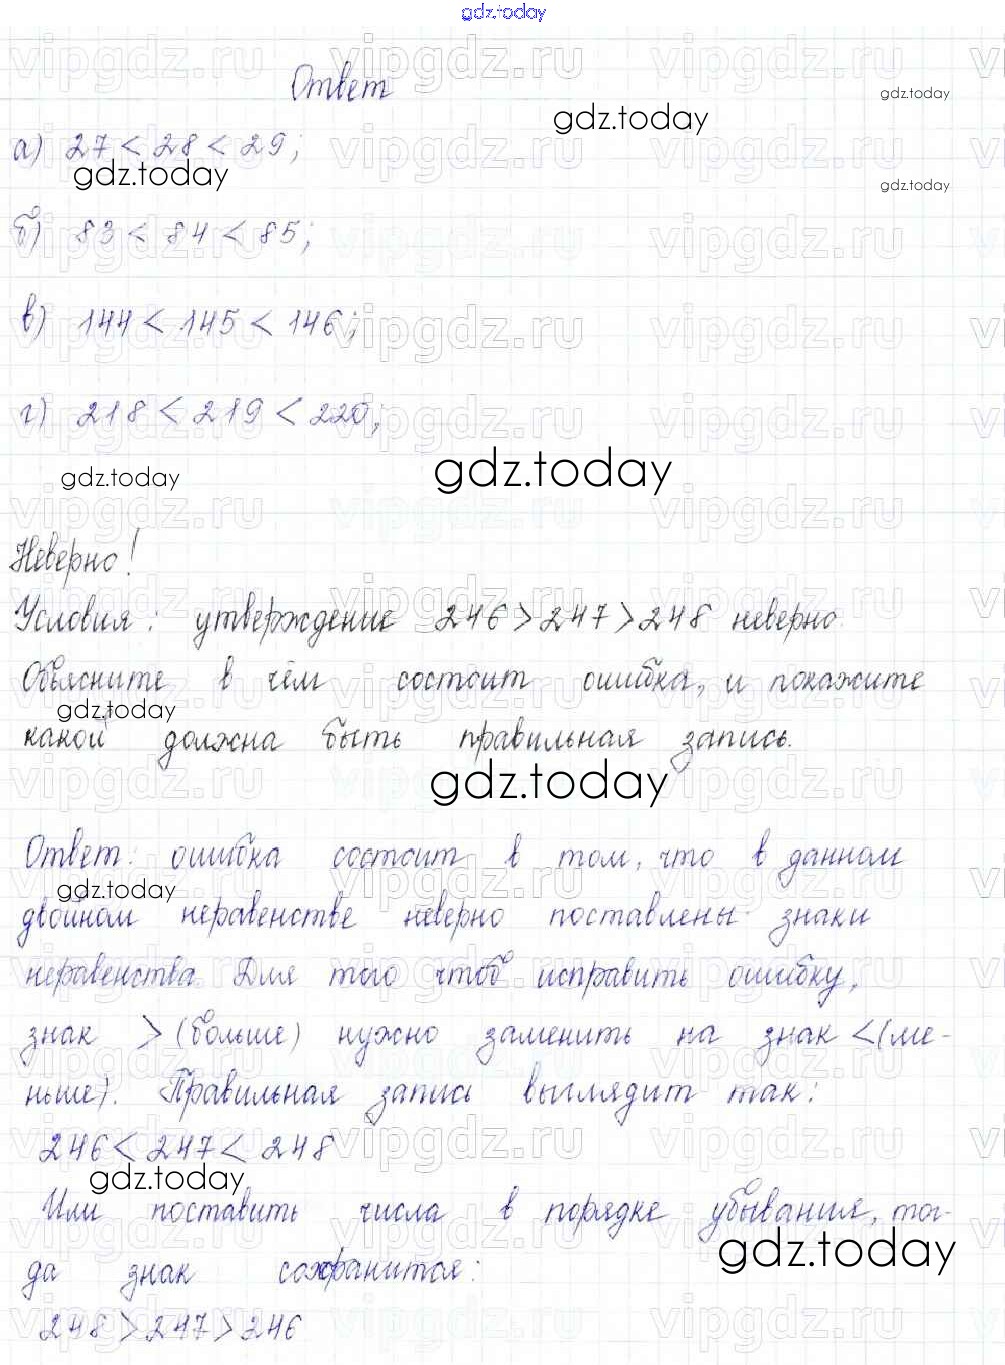 gdz.today
Ответ
а) 27 < 28 < 29;
б) 83 < 84 < 85;
в) 144 < 145 < 146;
г) 218 < 219 < 220;
gdz.today
Неверно!
Условия: утверждение 246 > 247 > 248 неверно.
Объясните в чём состоит ошибка, и покажите
какой должна быть правильная запись.
gdz.today
Ответ: ошибка состоит в том, что в данном
двойном неравенстве неверно поставлены знаки
неравенства. Для того чтоб исправить ошибку,
знак > (больше) нужно заменить на знак < (ме-
ньше). Правильная запись выглядит так:
246 < 247 < 248
gdz.today
Или поставить числа в порядке убывания, тог-
да знак сохранится:
248 > 247 > 246